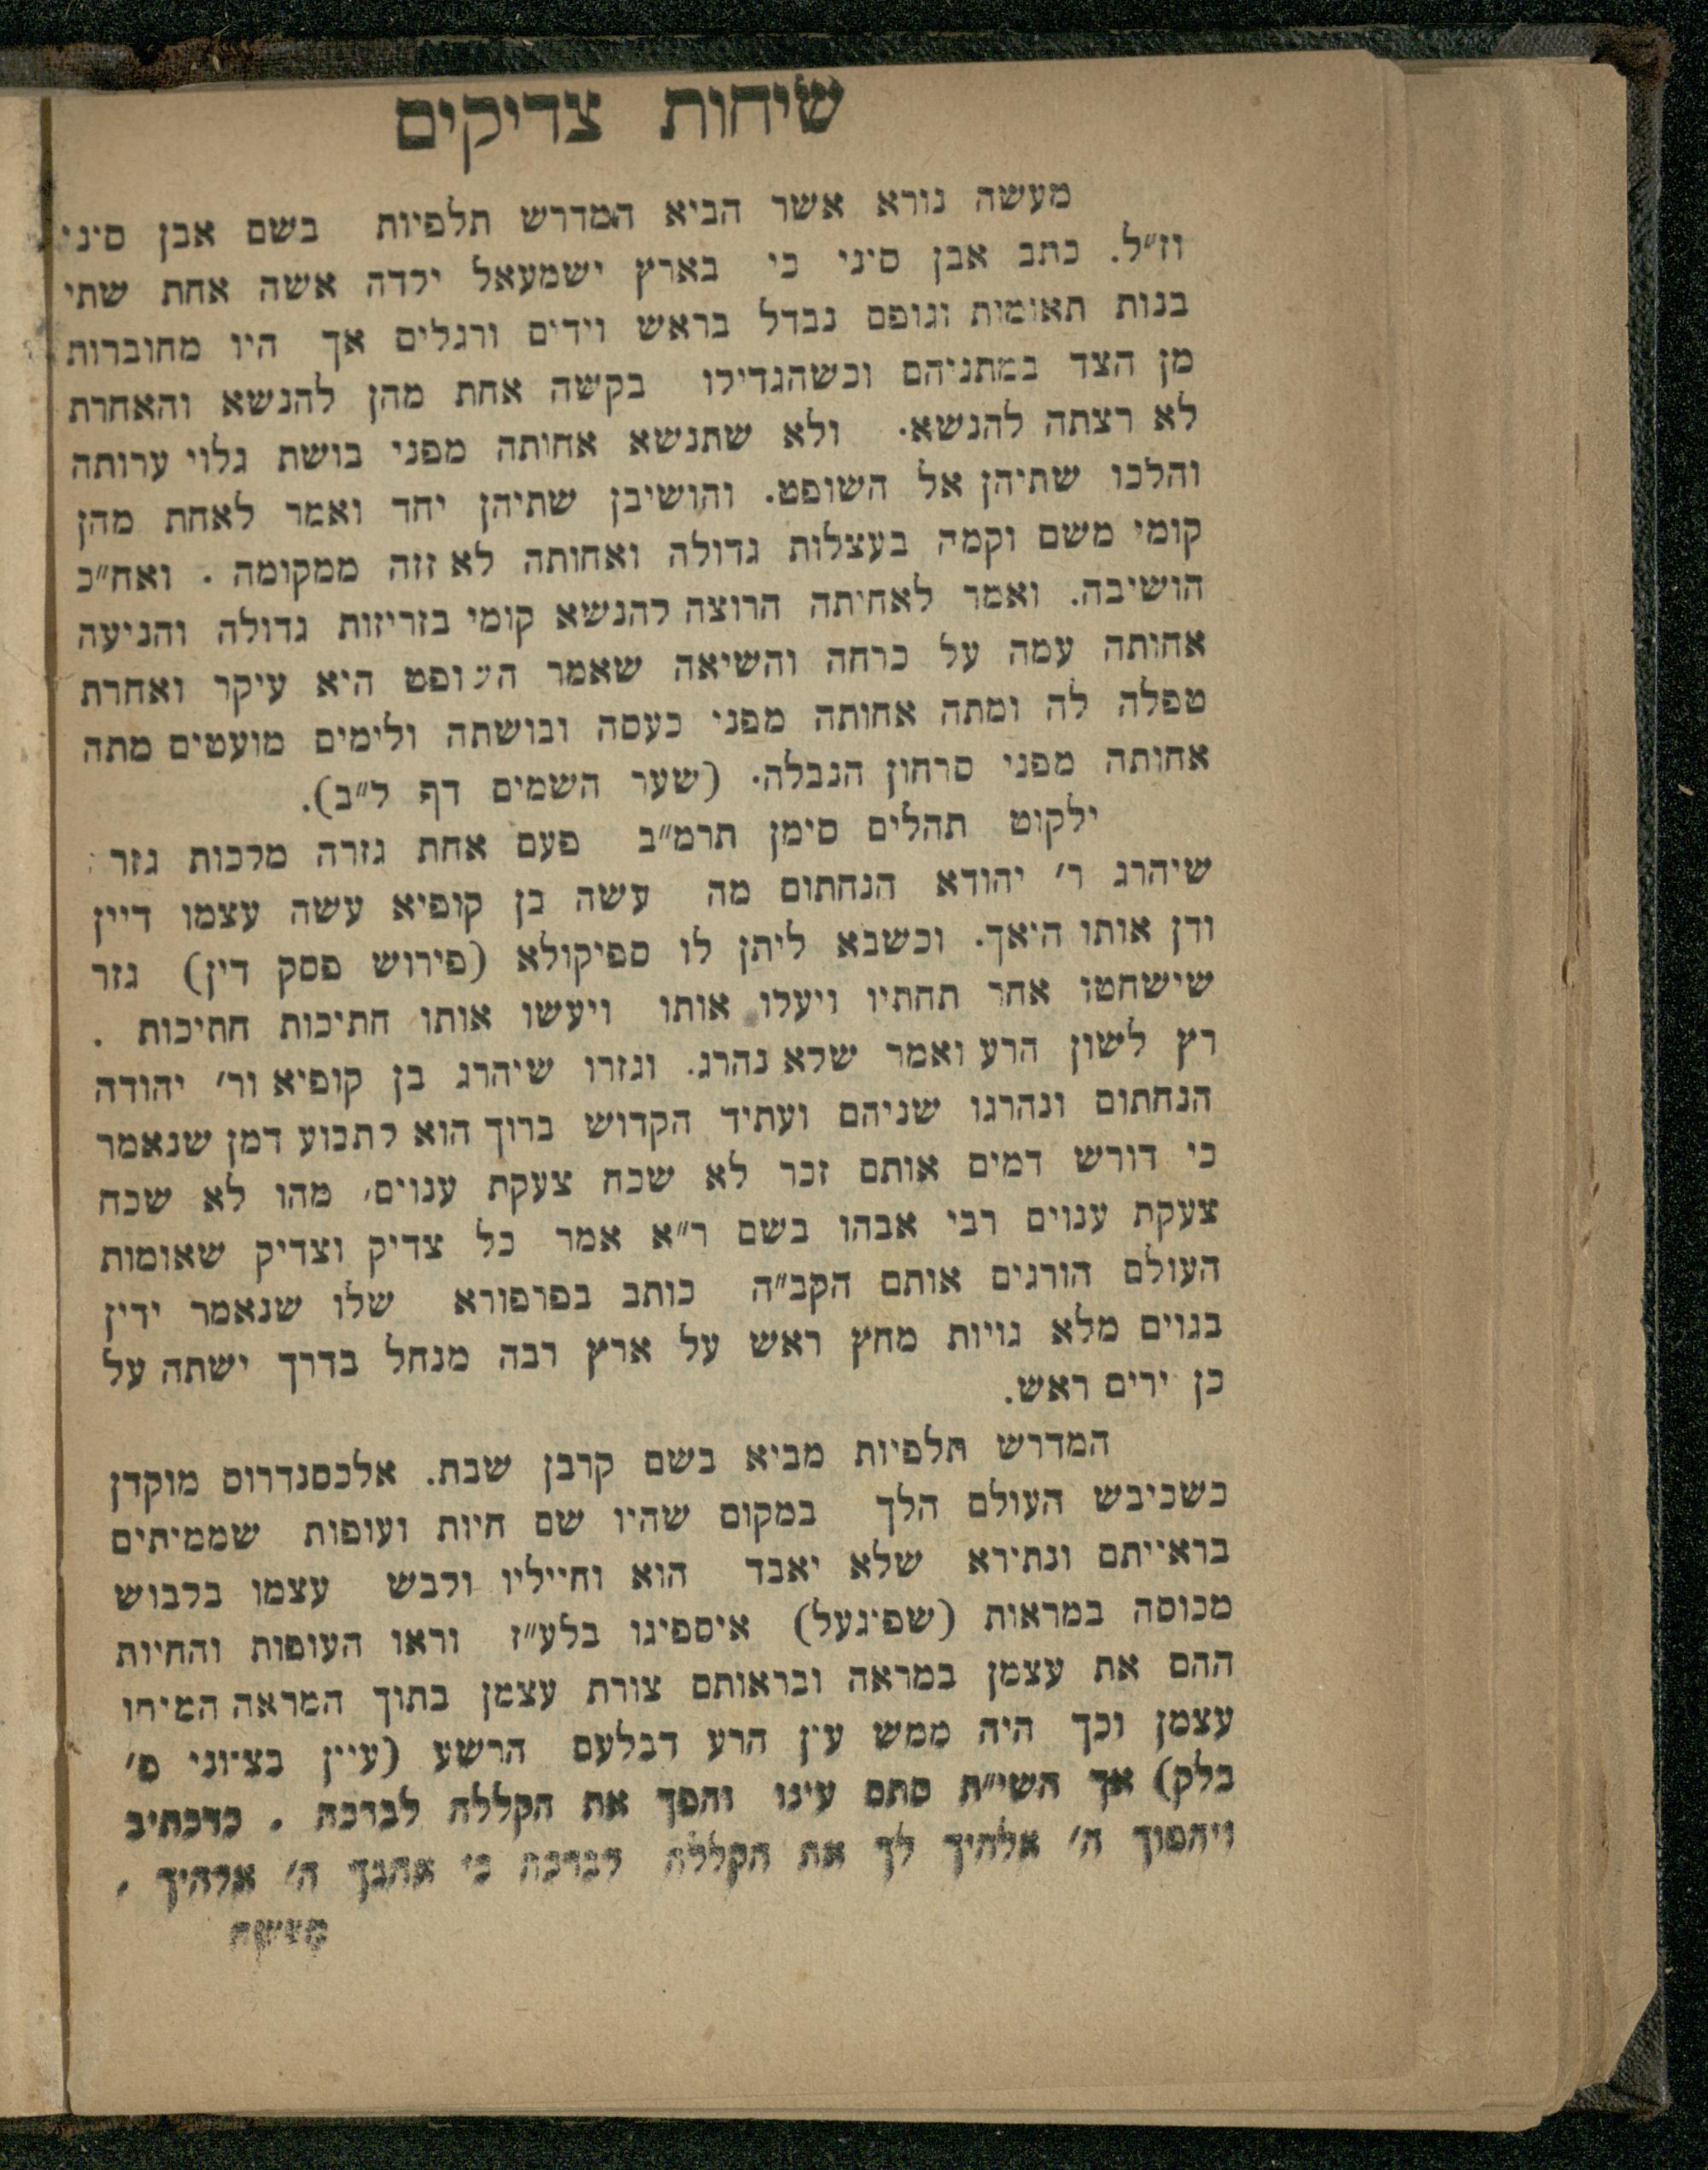 שיחות צדיקים
מעשה נורא אשר הביא המדרש תלפיות בשם אבן סיני
וז״ל. כתב אבן סיני כי בארץ ישמעאל ילדה אשה אחת שתי
בנות תאומות וגופם נבדל בראש וידים ורגלים אך היו מחוברות
מן הצד במתניהם וכשהגדילו בקשה אחת מהן להנשא והאחרת
לא רצתה להנשא. ולא שתנשא אחותה מפני בושת גלוי ערותה
והלכו שתיהן אל השופט. והושיבן שתיהן יחד ואמר לאחת מהן
קומי משם וקמה בעצלות גדולה ואחותה לא זזה ממקומה. ואח״כ
הושיבה. ואמר לאחיתה הרוצה להנשא קומי בזריזות גדולה והניעה
אחותה עמה על כרחה והשיאה שאמר השופט היא עיקר ואחרת
טפלה לה ומתה אחותה מפני כעסה ובושתה ולימים מועטים מתה
אחותה מפני סרחון הנבלה. (שער השמים דף ל״ב).
ילקוט תהלים סימן תרמ״ב פעם אחת גזרה מלכות גזר
שיהרג ר׳ יהודא הנחתום מה עשה בן קופיא עשה עצמו דיין
ודן אותו היאך. וכשבא ליתן לו ספיקולא (פירוש פסק דין) גזר
שישחטו אחר תחתיו ויעלו אותו ויעשו אותו חתיכות חתיכות.
רץ לשון הרע ואמר שלא נהרג. וגזרו שיהרג בן קופיא ור׳ יהודה
הנחתום ונהרגו שניהם ועתיד הקדוש ברוך הוא לתבוע דמן שנאמר
כי דורש דמים אותם זכר לא שכח צעקת ענוים, מהו לא שכח
צעקת ענוים רבי אבהו בשם ר״א אמר כל צדיק וצדיק שאומות
העולם הורגים אותם הקב״ה כותב בפרפורא שלו שנאמר ידין
בגוים מלא גויות מחץ ראש על ארץ רבה מנחל בדרך ישתה על
כן ירים ראש.
המדרש תלפיות מביא בשם קרבן שבת. אלכסנדרוס מוקדן
כשכיבש העולם הלך במקום שהיו שם חיות ועופות שממיתים
בראייתם ונתירא שלא יאבד הוא וחייליו ולבש עצמו בלבוש
מכוסה במראות (שפיגעל) איספיגו בלע״ז וראו העופות והחיות
ההם את עצמן במראה ובראותם צורת עצמן בתוך המראה המיתו
עצמן וכך היה ממש עין הרע דבלעם הרשע (עיין בציוני פ׳
בלק) אך השי״ת סתם עינו והפך את הקללה לברכה. כדכתיב
ויהפוך ה׳ אלהיך לך את הקללה לברכה כי אהבך ה׳ אלהיך.
מעשה